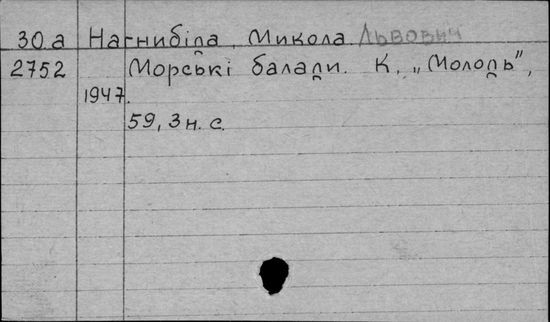 30.а Нагнибіда, Микола Львович
2752 Морські балади. К., „Молодь”,
1947.
59, 3 н. с.